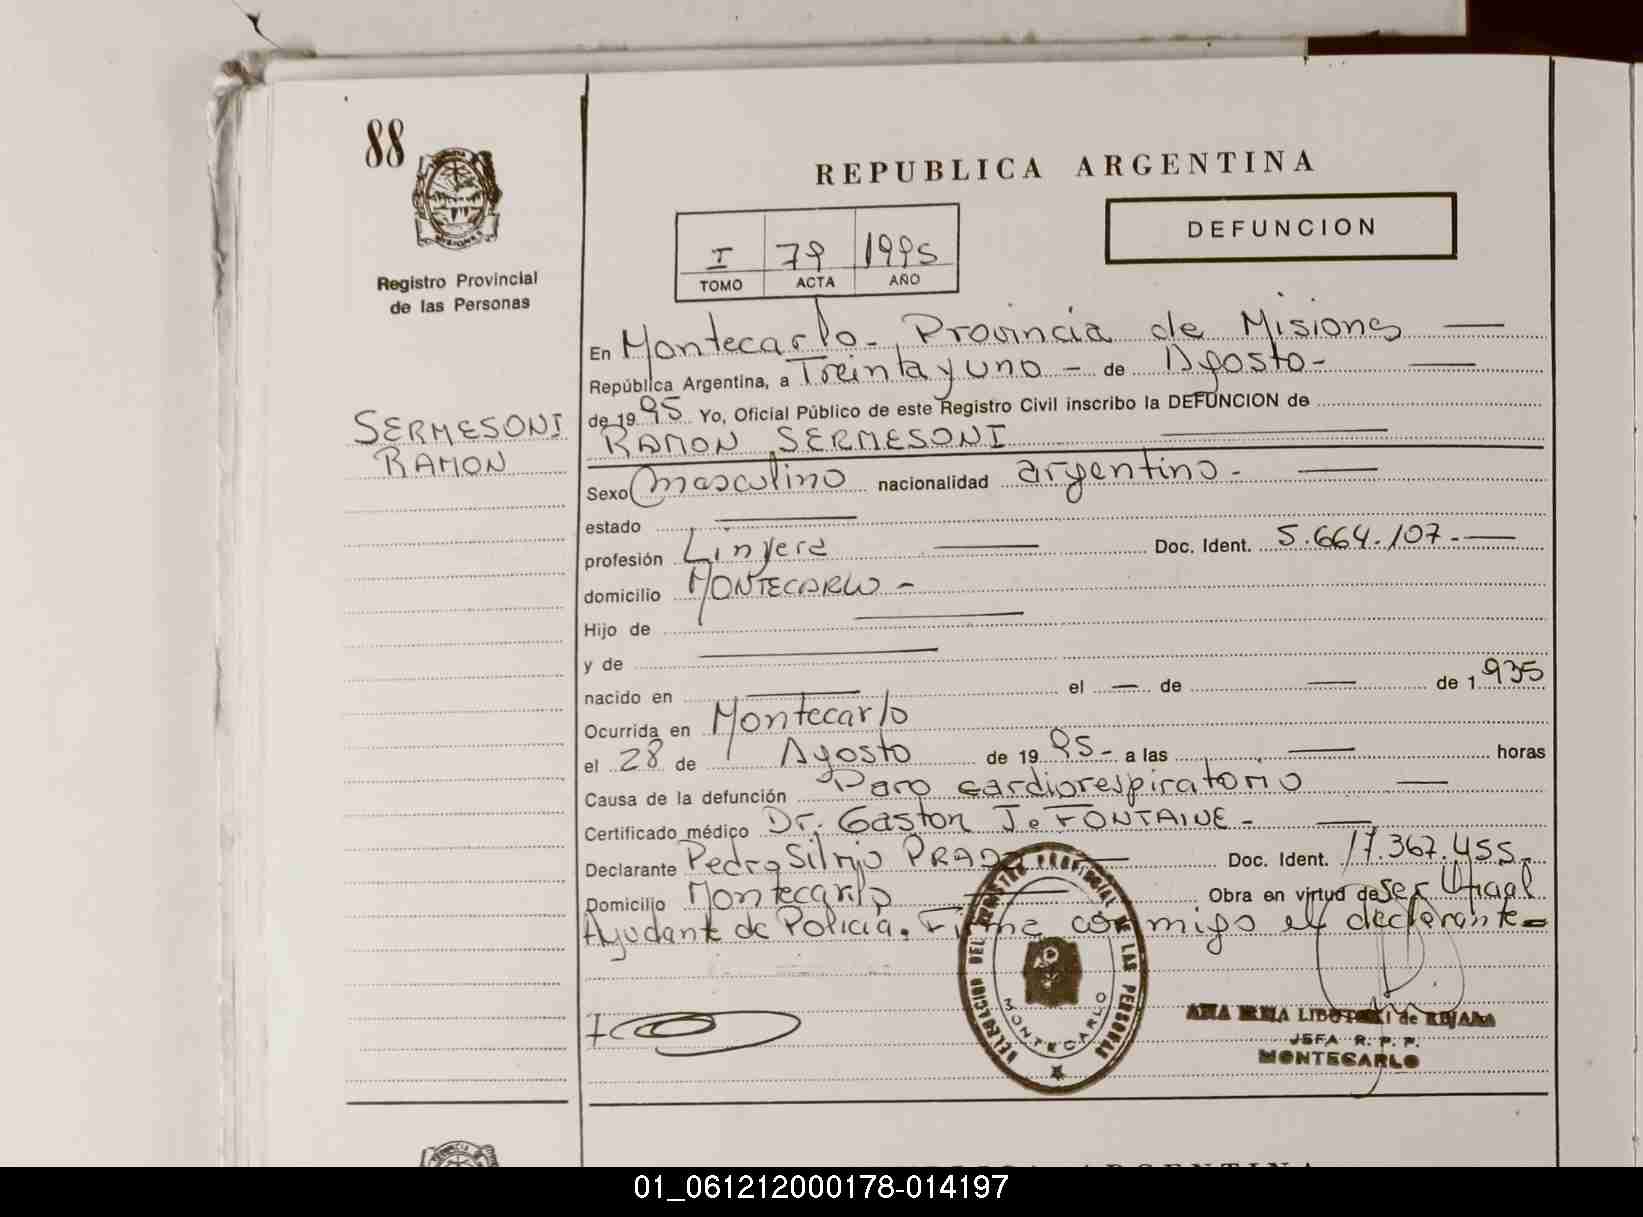 88
REPUBLICA ARGENTINA
DEFUNCION
I 79 1995
TOMO ACTA AÑO
Registro Provincial
de las Personas
En Montecarlo - Provincia de Misiones
República Argentina, a Treinta y uno - de Agosto -
de 1995 Yo, Oficial Público de este Registro Civil inscribo la DEFUNCION de
SERMESONI
RAMON
RAMON SERMESONI
Sexo masculino nacionalidad argentino -
estado
profesión Linyera Doc. Ident. 5.664.107 -
domicilio MONTECARLO -
Hijo de
y de
nacido en el — de — de 1935
Ocurrida en Montecarlo
el 28 de Agosto de 1995 - a las horas
Causa de la defunción Paro cardiorespiratorio
Certificado médico Dr. Gaston J. FONTAINE -
Declarante Pedro Silvio PRADO Doc. Ident. 17.367.455 -
Domicilio Montecarlo Obra en virtud de ser Oficial
Ayudante de Policia. Firma conmigo el declarante -
DELEGACION DEL REGISTRO PROVINCIAL DE LAS PERSONAS
MONTECARLO
ANA de ROJANA
JEFA R. P. P.
MONTECARLO
01_061212000178-014197